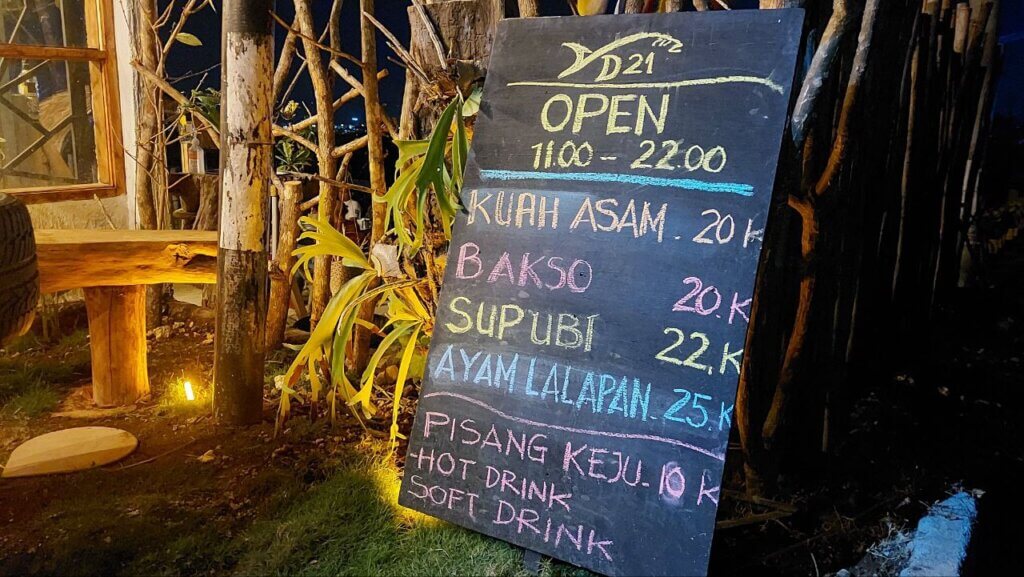 D21
OPEN
11.00 - 22.00
KUAH ASAM. 20 K
BAKSO 20.K
SUP UBI 22.K
AYAM LALAPAN. 25.K
PISANG KEJU - 10 K
-HOT DRINK
SOFT DRINK